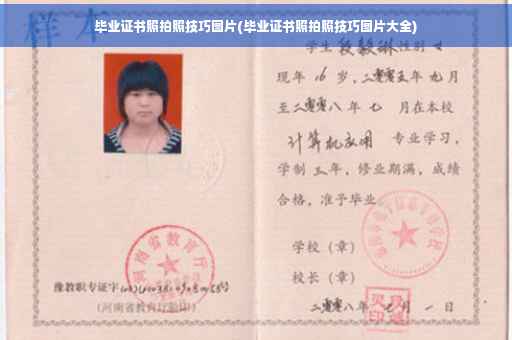 毕业证书照拍照技巧图片(毕业证书照拍照技巧图片大全)
样本
学生段毅琳性别女
现年16岁，二零零五年九月
至二零零八年七月在本校
计算机应用 专业学习，
学制三年，修业期满，成绩
合格，准予毕业。
学校（章）
校长（章）
二零零八年七月一日
河南省教育厅
豫教职专证字
(河南省教育厅验印)